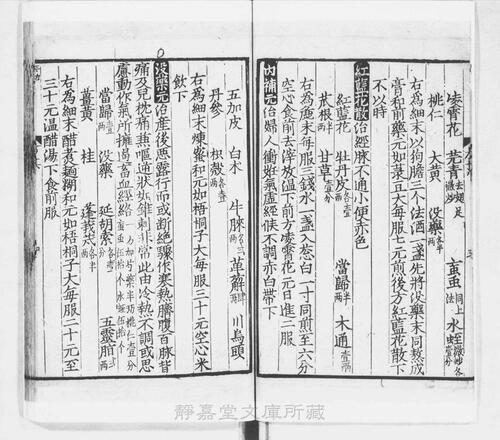 凌霄花　芫青　䖟　同上法　水蛭
桃仁　大黄　没藥
右為細末以狗膽三个法酒一盞先將没藥末同熬成
膏和前藥元如菉豆大每服七元煎後方紅藍花散下
不以時
紅藍花散治經脉不通小便赤色
紅藍花　牡丹皮　當歸半两　木通
根　甘草
右為麁末每服三錢水一盞入葱白一寸同煎至六分
空心食前去滓放温下前方凌霄花元日進二服
内補元治婦人衝妊氣虚經候不調赤白帶下
五加皮　白术　牛膝　萆薢　川烏頭
丹參　枳殼
右為細末煉蜜和元如梧桐子大每服三十元空心米
飲下
没藥元治産後惡露行而或断絕驟作寒熱臍腹百脉皆
痛及兒枕痛煎嘔逆狀如錐刺非常此由冷熱不調或思
慮動作氣所擁遏畜血經絡
當歸　没藥　延胡索　五靈脂
薑黄　桂　蓬莪茂
右為細末醋煮麵糊和元如梧桐子大每服二十元至
三十元温醋湯下食前服
靜嘉堂文庫所藏